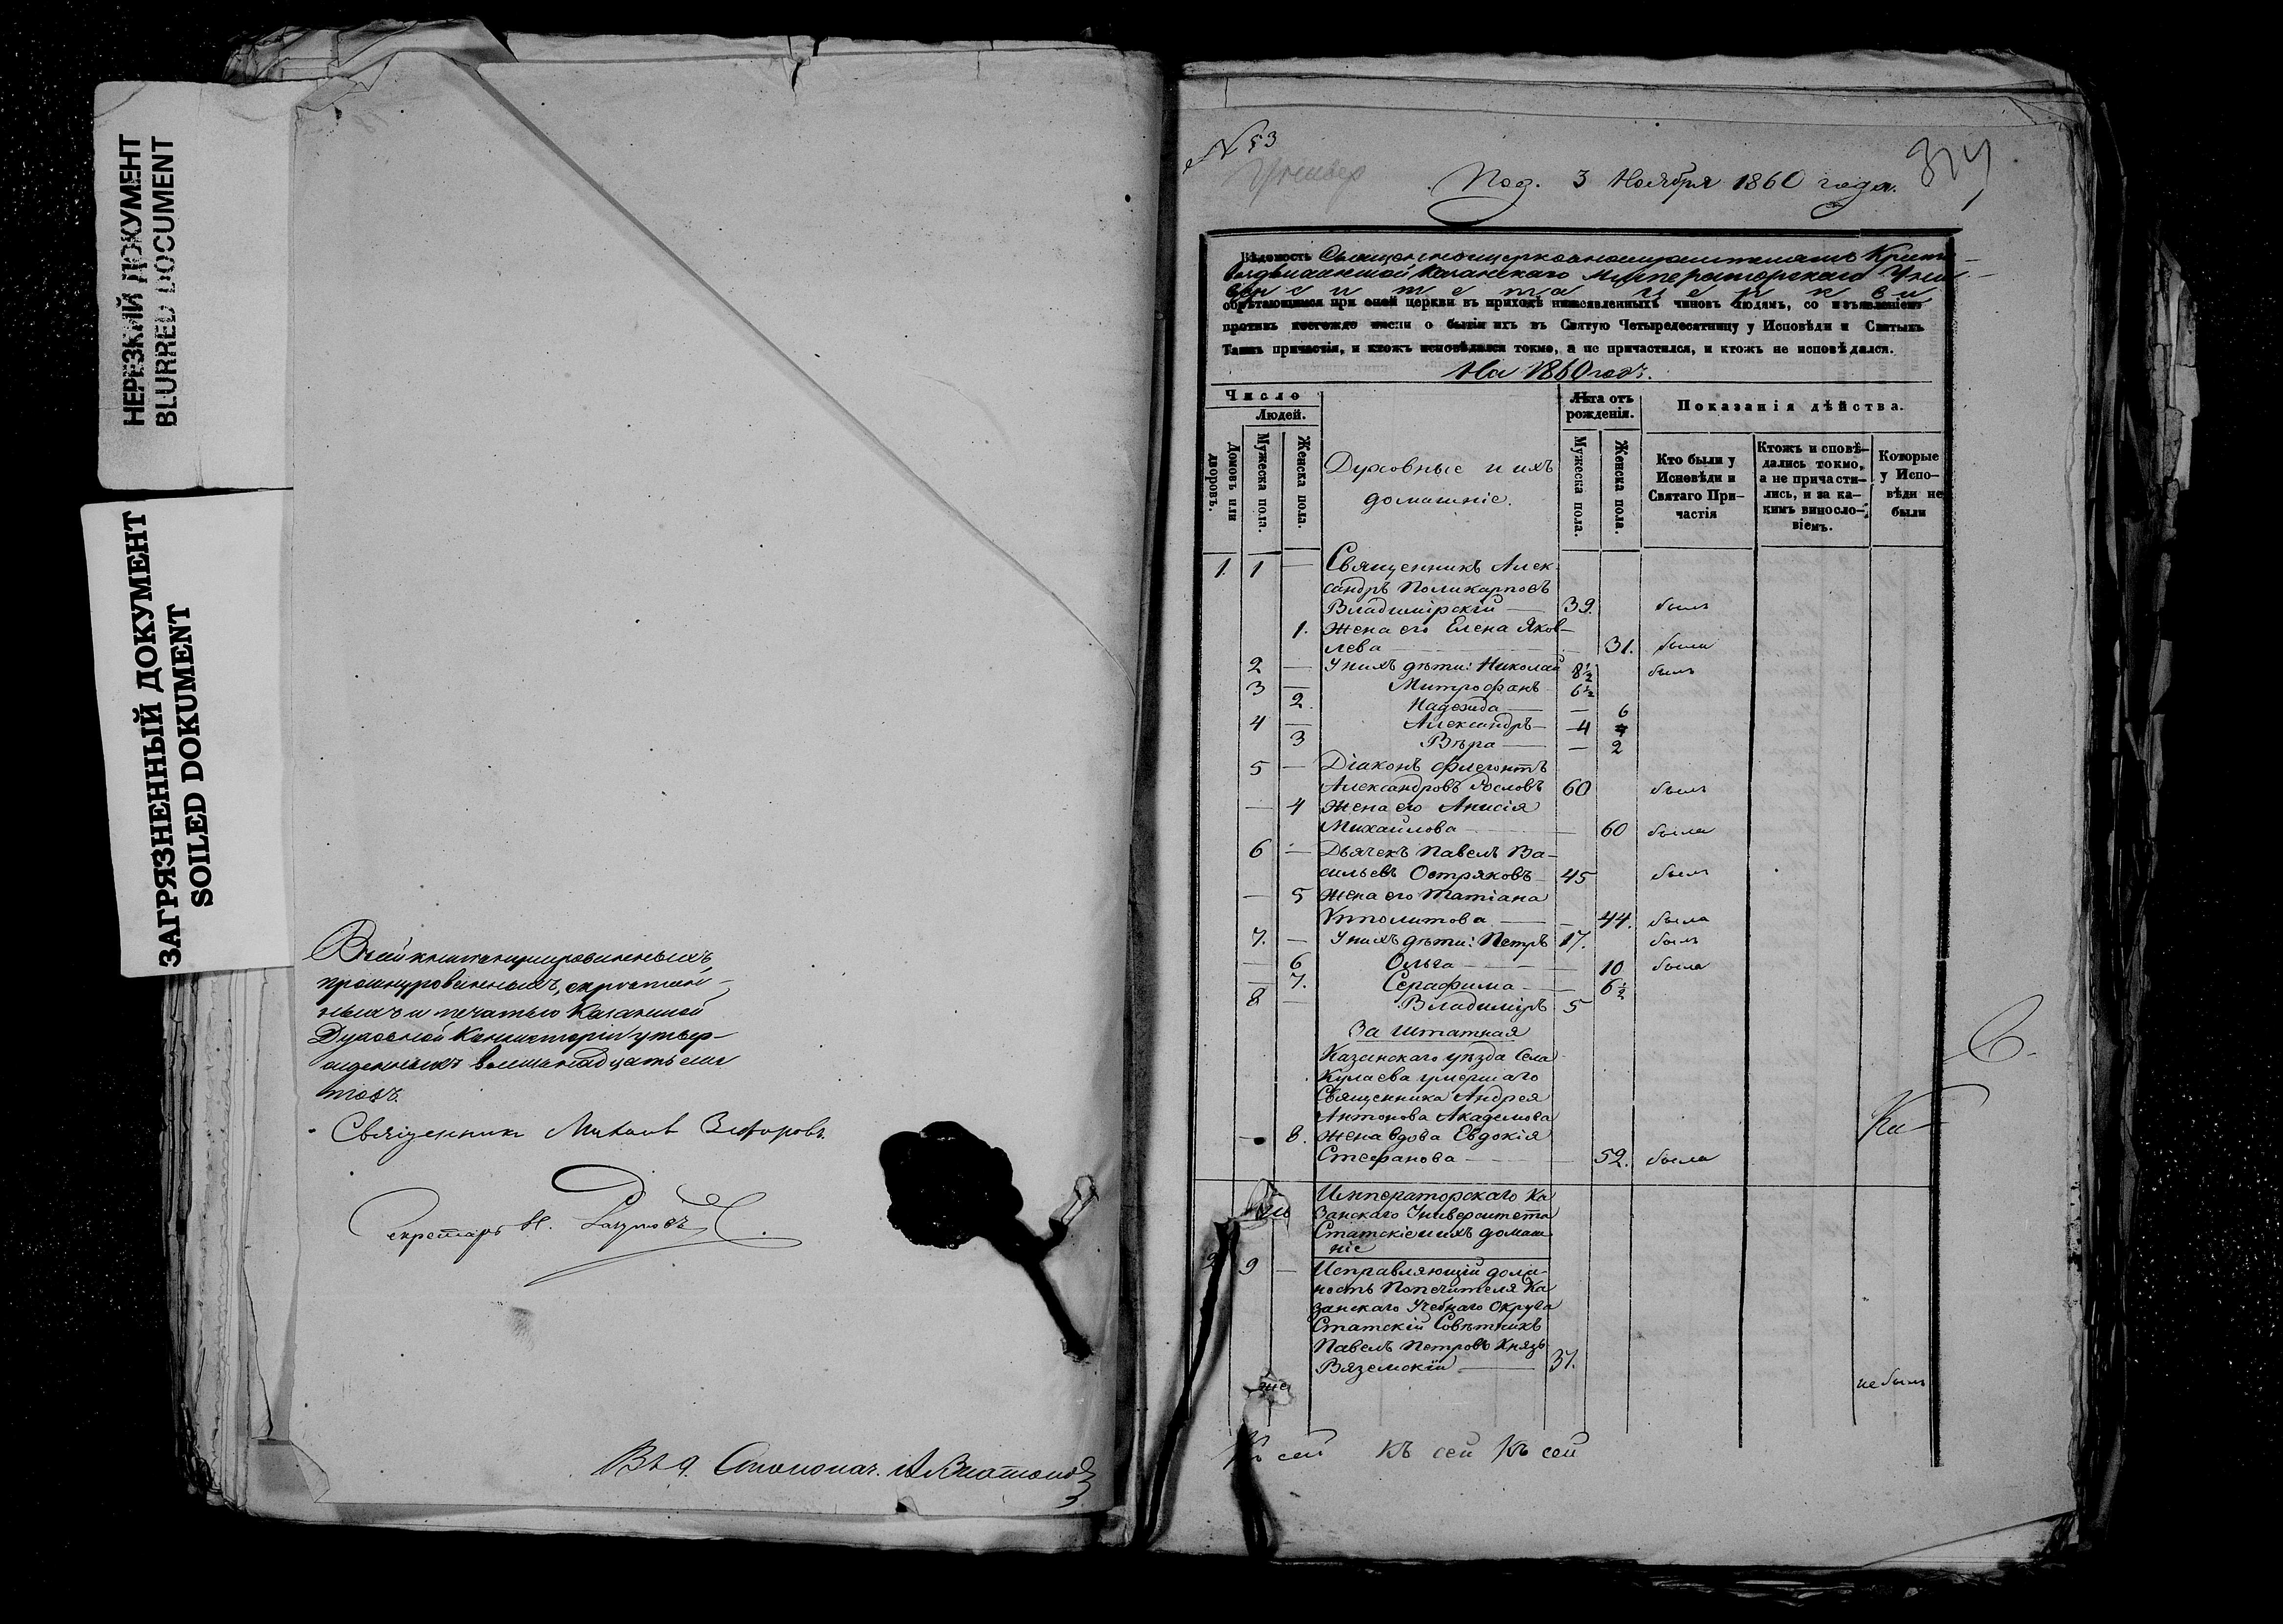 НЕРЕЗКИЙ ДОКУМЕНТ
BLURRED DOCUMENT
ЗАГРЯЗНЕННЫЙ ДОКУМЕНТ
SOILED DOKUMENT
В сей книге нумерованныхъ,
прошнурованныхъ, скреплен-
ныхъ и печатью Казанской
Духовной Консисторіи утвер-
жденныхъ восемьнадцать лис
товъ.
Священникъ Михаилъ Зефировъ.
Секретарь Н.
Столонач.
№ 53
Универ
Под. 3 Ноября 1860 года.
374
Вѣдомость Кресто-
воздвиженской Казанскаго Императорскаго Уни-
верситета церкви
обрѣтающимся при оной церкви въ приходѣ нижеявленныхъ чиновъ людямъ, со изъявленіемъ
противъ коегождо имени о бытіи ихъ въ Святую Четыредесятницу у Исповѣди и Святыхъ
Таинъ причастія, и ктожъ исповѣдался токмо, а не причастился, и ктожъ не исповѣдался.
На 1860 годъ.
Число
Людей.
Домовъ или дворовъ.
Мужеска пола.
Женска пола.
Духовные и ихъ
домашніе.
Лѣта отъ рожденія.
Мужеска пола.
Женска пола.
Показанія дѣйства.
Кто были у Исповѣди и Святаго При-частія
Ктожъ исповѣ-дались токмо, а не причасти-лись, и за ка-кимъ винословіемъ.
Которые у Испо-вѣди не были
1. 1 — Священникъ Алек-
сандръ Поликарповъ
Владимірскій — 39. былъ
1. Жена его Елена Яков-
лева 31. была
2 — У нихъ дѣти: Николай 8½ былъ
3 — Митрофанъ 6½
2. Надежда — — 6
4 — Александръ — 4
3 Вѣра — — 2
5 — Діаконъ Флегонтъ
Александровъ Рословъ 60 былъ
— 4 Жена его Анисія
Михайлова — 60 была
6 — Дьячекъ Павелъ Ва-
сильевъ Остряковъ — 45 былъ
— 5 Жена его Татіана
Ипполитова — — 44. была
7. — У нихъ дѣти: Петръ 17. былъ
— 6 Ольга — — 10 была
— 7. Серафима — — 6½
8 — Владиміръ 5
Заштатная
Казанскаго уѣзда Села
Кулаева умершаго
Священника Андрея
Антонова Академова
— 8. жена вдова Евдокія
Стефанова — — 52. была
Ка-
Императорскаго Ка
занскаго Университета
Статскіе и ихъ домаш
ніе
2 9 — Исправляющій долж-
ность Попечителя Ка
занскаго Учебнаго Округа
Статскій Совѣтникъ
Павелъ Петровъ Князь
Вяземскій — 37. не былъ
Къ сей Къ сей Къ сей